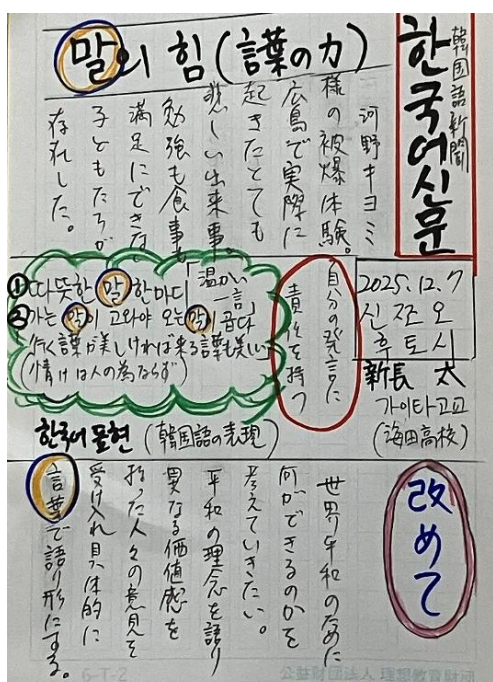 韓国語新聞
한국어신문
말의 힘(言葉の力)
河野キヨミ
様の被爆体験。
広島で実際に
起きたとても
悲しい出来事。
勉強も食事も
満足にできない
子どもたちが
存在した。
2025.12.7
신죠오
후토시
新長 太
가이타고교
(海田高校)
自分の発言に
責任を持つ
① 따뜻한 말 한마디「温かい一言」
② 가는 말이 고와야 오는 말이 곱다
行く言葉が美しければ来る言葉も美しい
(情けは人の為ならず)
한국어 표현 (韓国語の表現)
改めて
世界平和のために
何ができるのかを
考えていきたい。
平和の理念を語り
異なる価値感を
持った人々の意見を
受け入れ具体的に
言葉で語り形にする。
6-T-2
公益財団法人 理想教育財団